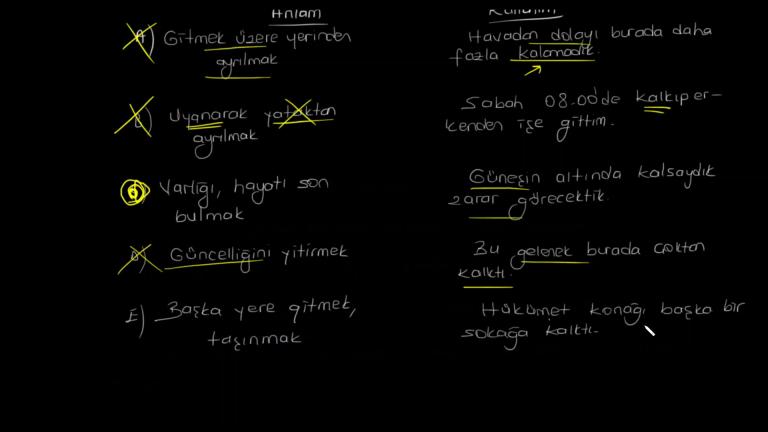 Anlam Kullanım
A) Gitmek üzere yerinden
ayrılmak
Havadan dolayı burada daha
fazla kalamadık.
B) Uyanarak yataktan
ayrılmak
Sabah 08.00'de kalkıp er-
kenden işe gittim.
C) Varlığı, hayatı son
bulmak
Güneşin altında kalsaydık
zarar görecektik.
D) Güncelliğini yitirmek
Bu gelenek burada çoktan
kalktı.
E) Başka yere gitmek,
taşınmak
Hükümet konağı başka bir
sokağa kalktı.